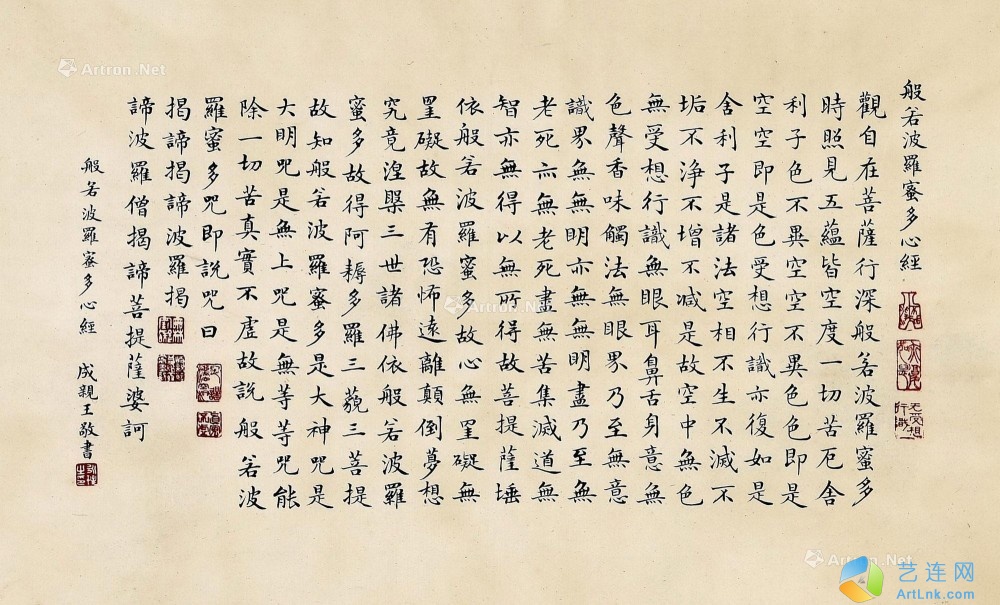 般若波羅蜜多心經
觀自在菩薩行深般若波羅蜜多
時照見五蘊皆空度一切苦厄舍
利子色不異空空不異色色即是
空空即是色受想行識亦復如是
舍利子是諸法空相不生不滅不
垢不淨不增不减是故空中無色
無受想行識無眼耳鼻舌身意無
色聲香味觸法無眼界乃至無意
識界無無明亦無無明盡乃至無
老死亦無老死盡無苦集滅道無
智亦無得以無所得故菩提薩埵
依般若波羅蜜多故心無罣礙無
罣礙故無有恐怖遠離顛倒夢想
究竟涅槃三世諸佛依般若波羅
蜜多故得阿耨多羅三藐三菩提
故知般若波羅蜜多是大神咒是
大明咒是無上咒是無等等咒能
除一切苦真實不虛故說般若波
羅蜜多咒即說咒曰
揭諦揭諦波羅揭
諦波羅僧揭諦菩提薩婆訶
般若波羅蜜多心經 成親王敬書
Artron.Net
Artron.Net
Artron.Net
Artron.Net
艺连网
ArtLnk.com